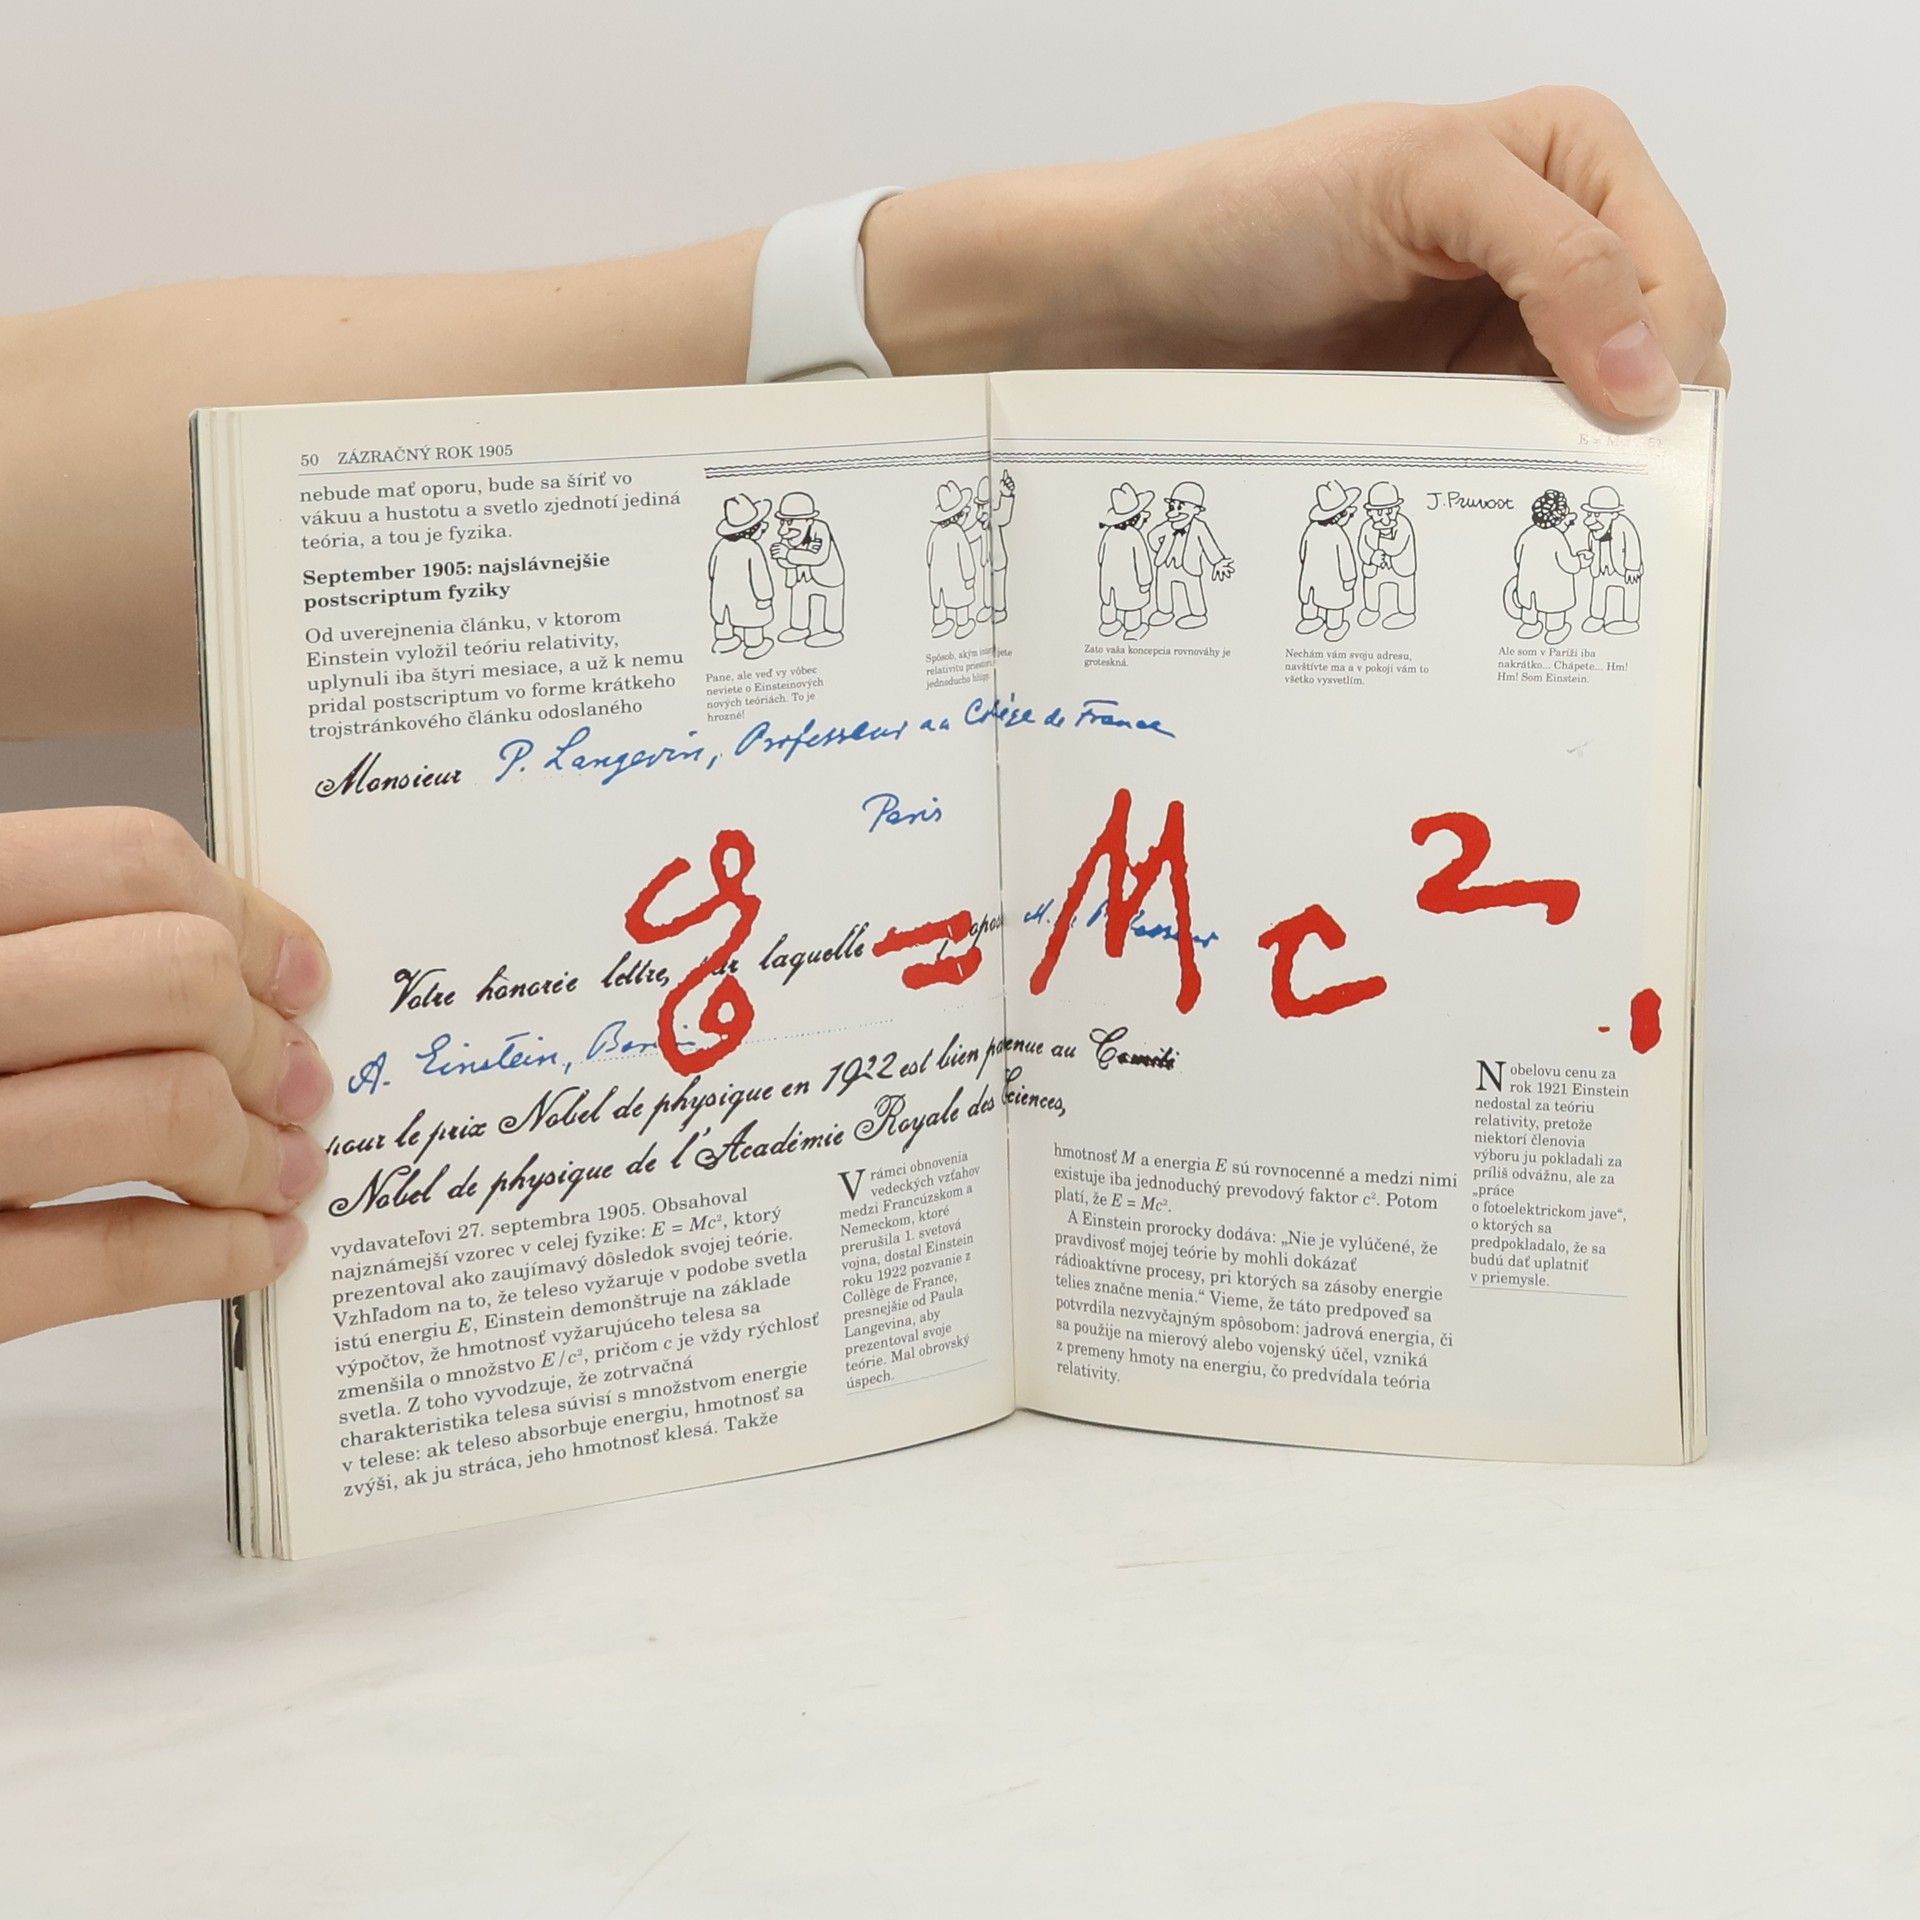 50 ZÁZRAČNÝ ROK 1905
nebude mať oporu, bude sa šíriť vo
vákuu a hustotu a svetlo zjednotí jediná
teória, a tou je fyzika.
September 1905: najslávnejšie
postscriptum fyziky
Od uverejnenia článku, v ktorom
Einstein vyložil teóriu relativity,
uplynuli iba štyri mesiace, a už k nemu
pridal postscriptum vo forme krátkeho
trojstránkového článku odoslaného
Pane, ale veď vy vôbec
neviete o Einsteinových
nových teóriách. To je
hrozné!
Spôsob, akým
relativitu
jednoducho
Zato vaša koncepcia rovnováhy je
groteskná.
Nechám vám svoju adresu,
navštívte ma a v pokoji vám to
všetko vysvetlím.
J. Pruvost
Ale som v Paríži iba
nakrátko... Chápete... Hm!
Hm! Som Einstein.
Monsieur P. Langevin, Professeur au Collège de France
Paris
E = Mc².
Votre honorée lettre, par laquelle
A. Einstein, Berlin
pour le prix Nobel de physique en 1922 est bien parvenue au Comité
Nobel de physique de l'Académie Royale des Sciences,
vydavateľovi 27. septembra 1905. Obsahoval
najznámejší vzorec v celej fyzike: E = Mc², ktorý
prezentoval ako zaujímavý dôsledok svojej teórie.
Vzhľadom na to, že teleso vyžaruje v podobe svetla
istú energiu E, Einstein demonštruje na základe
výpočtov, že hmotnosť vyžarujúceho telesa sa
zmenšila o množstvo E/c², pričom c je vždy rýchlosť
svetla. Z toho vyvodzuje, že zotrvačná
charakteristika telesa súvisí s množstvom energie
v telese: ak teleso absorbuje energiu, hmotnosť sa
zvýši, ak ju stráca, jeho hmotnosť klesá. Takže
V rámci obnovenia
vedeckých vzťahov
medzi Francúzskom a
Nemeckom, ktoré
prerušila 1. svetová
vojna, dostal Einstein
roku 1922 pozvanie z
Collège de France,
presnejšie od Paula
Langevina, aby
prezentoval svoje
teórie. Mal obrovský
úspech.
hmotnosť M a energia E sú rovnocenné a medzi nimi
existuje iba jednoduchý prevodový faktor c². Potom
platí, že E = Mc².
A Einstein prorocky dodáva: „Nie je vylúčené, že
pravdivosť mojej teórie by mohli dokázať
rádioaktívne procesy, pri ktorých sa zásoby energie
telies značne menia.“ Vieme, že táto predpoveď sa
potvrdila nezvyčajným spôsobom: jadrová energia, či
sa použije na mierový alebo vojenský účel, vzniká
z premeny hmoty na energiu, čo predvídala teória
relativity.
Nobelovu cenu za
rok 1921 Einstein
nedostal za teóriu
relativity, pretože
niektorí členovia
výboru ju pokladali za
príliš odvážnu, ale za
„práce
o fotoelektrickom jave“,
o ktorých sa
predpokladalo, že sa
budú dať uplatniť
v priemysle.